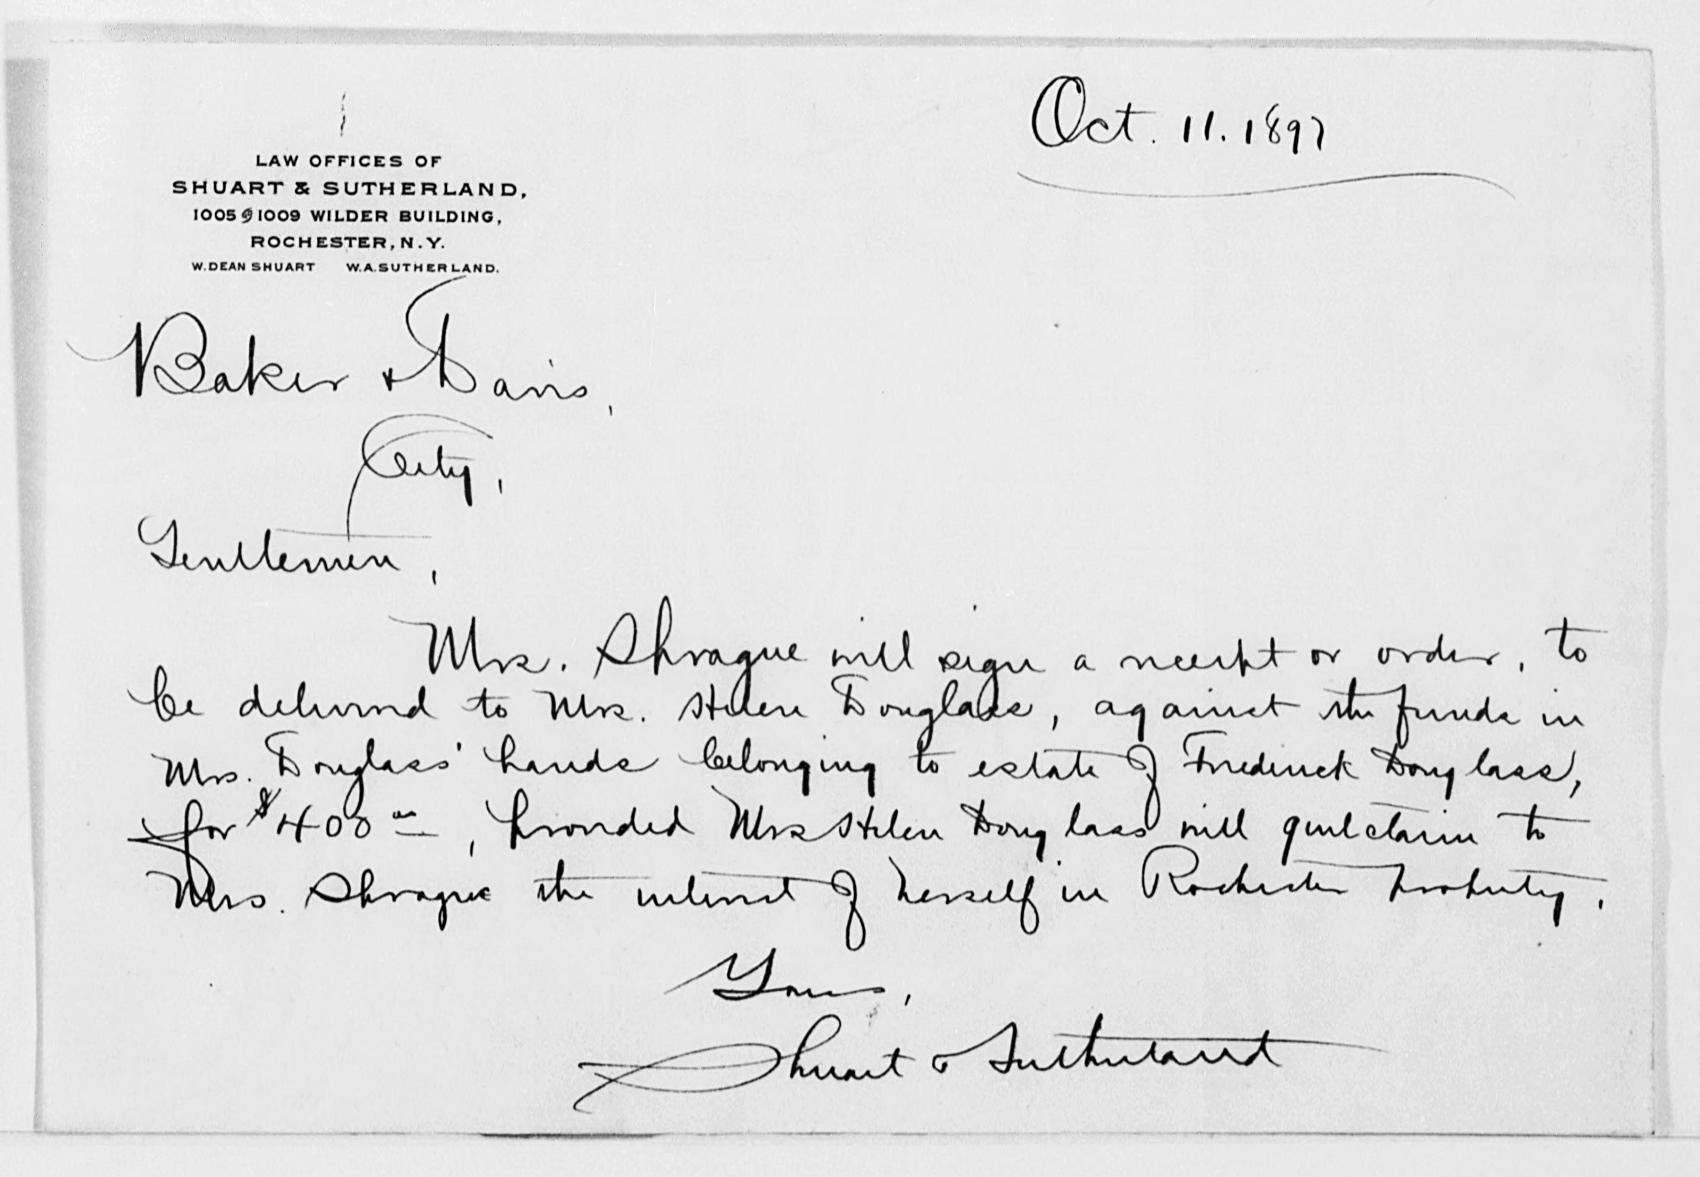 Oct. 11. 1897
LAW OFFICES OF
SHUART & SUTHERLAND,
1005 @ 1009 WILDER BUILDING,
ROCHESTER, N.Y.
W. DEAN SHUART W. A. SUTHERLAND.
Baker & Davis,
City,
Gentlemen,
Mrs. Sprague will sign a receipt or order, to
be delivered to Mrs. Helen Douglass, against the funds in
Mrs. Douglass' hands belonging to estate of Frederick Douglass,
for $400 00, provided Mrs Helen Douglass will quitclaim to
Mrs. Sprague the interest of herself in Rochester property.
Yours,
Shuart & Sutherland